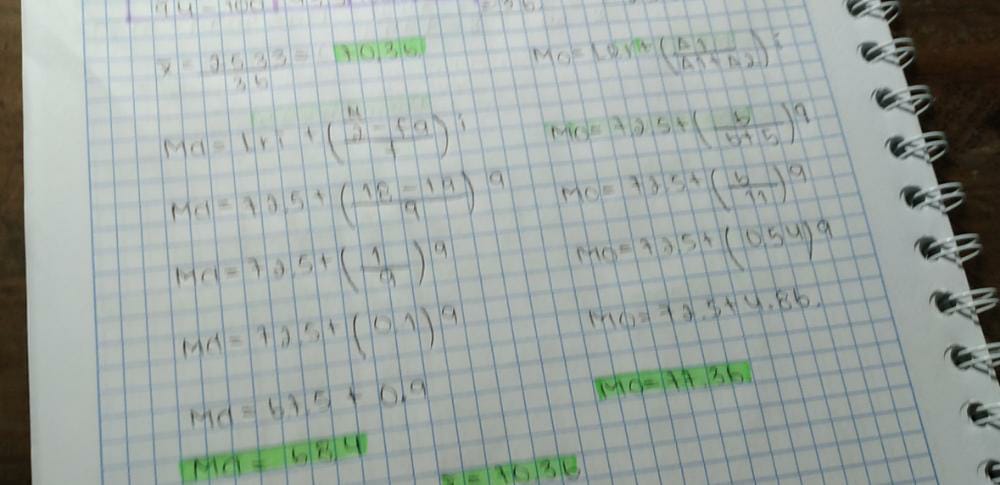 94-100
=36.
x = 2533/36 = 70.36
Md = lri + (N/2 - fa / f) i
Md = 72.5 + (18 - 19 / 9) 9
Md = 72.5 + (1/9) 9
Md = 72.5 + (0.1) 9
Md = 67.5 + 0.9
Md = 68.4
Mo = Lri + (Δ1 / Δ1 + Δ2) i
Mo = 72.5 + (6 / 6+5) 9
Mo = 72.5 + (6/11) 9
Mo = 72.5 + (0.54) 9
Mo = 72.5 + 4.86.
Mo = 77.36
x = 70.36